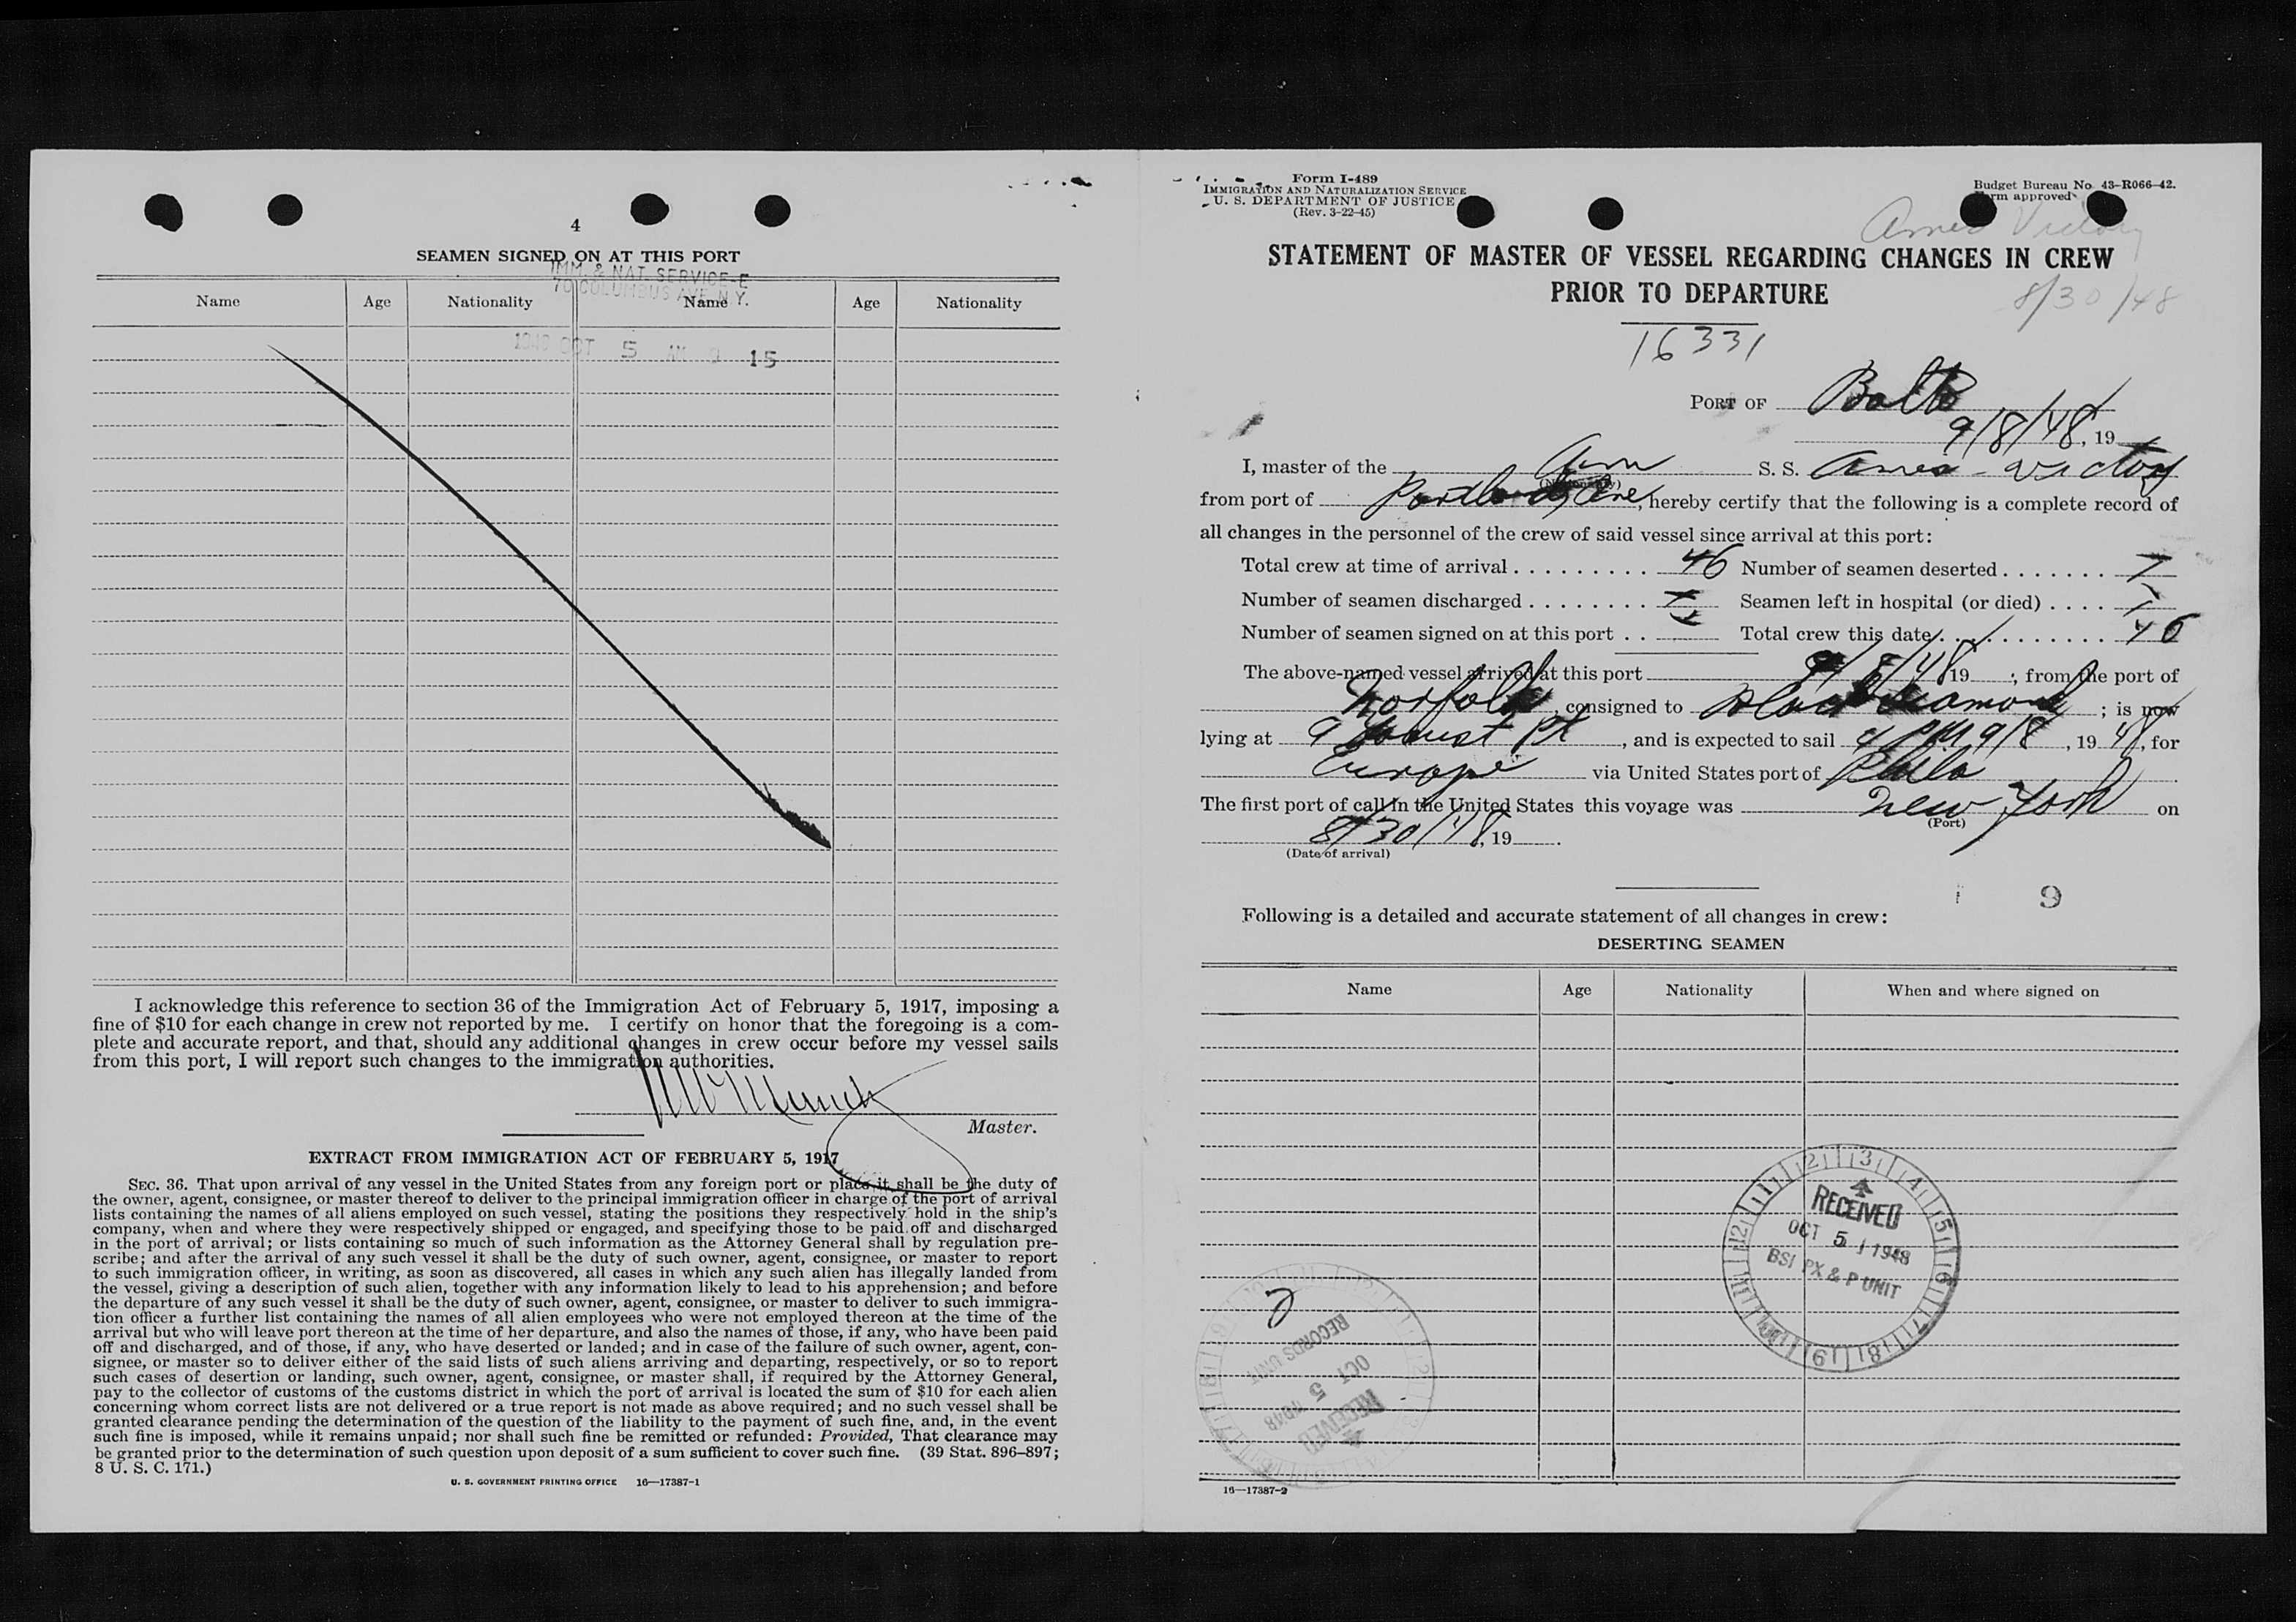 4
SEAMEN SIGNED ON AT THIS PORT
IMM. & NAT. SERVICE-E
70 COLUMBUS AVE N.Y.
Name Age Nationality Name Age Nationality
1948 OCT 5 AM 9 15
I acknowledge this reference to section 36 of the Immigration Act of February 5, 1917, imposing a
fine of $10 for each change in crew not reported by me. I certify on honor that the foregoing is a com-
plete and accurate report, and that, should any additional changes in crew occur before my vessel sails
from this port, I will report such changes to the immigration authorities.
Master.
EXTRACT FROM IMMIGRATION ACT OF FEBRUARY 5, 1917
SEC. 36. That upon arrival of any vessel in the United States from any foreign port or place it shall be the duty of
the owner, agent, consignee, or master thereof to deliver to the principal immigration officer in charge of the port of arrival
lists containing the names of all aliens employed on such vessel, stating the positions they respectively hold in the ship's
company, when and where they were respectively shipped or engaged, and specifying those to be paid off and discharged
in the port of arrival; or lists containing so much of such information as the Attorney General shall by regulation pre-
scribe; and after the arrival of any such vessel it shall be the duty of such owner, agent, consignee, or master to report
to such immigration officer, in writing, as soon as discovered, all cases in which any such alien has illegally landed from
the vessel, giving a description of such alien, together with any information likely to lead to his apprehension; and before
the departure of any such vessel it shall be the duty of such owner, agent, consignee, or master to deliver to such immigra-
tion officer a further list containing the names of all alien employees who were not employed thereon at the time of the
arrival but who will leave port thereon at the time of her departure, and also the names of those, if any, who have been paid
off and discharged, and of those, if any, who have deserted or landed; and in case of the failure of such owner, agent, con-
signee, or master so to deliver either of the said lists of such aliens arriving and departing, respectively, or so to report
such cases of desertion or landing, such owner, agent, consignee, or master shall, if required by the Attorney General,
pay to the collector of customs of the customs district in which the port of arrival is located the sum of $10 for each alien
concerning whom correct lists are not delivered or a true report is not made as above required; and no such vessel shall be
granted clearance pending the determination of the question of the liability to the payment of such fine, and, in the event
such fine is imposed, while it remains unpaid; nor shall such fine be remitted or refunded: Provided, That clearance may
be granted prior to the determination of such question upon deposit of a sum sufficient to cover such fine. (39 Stat. 896–897;
8 U. S. C. 171.)
U. S. GOVERNMENT PRINTING OFFICE 16—17387-1
Form I-489
IMMIGRATION AND NATURALIZATION SERVICE
U. S. DEPARTMENT OF JUSTICE
(Rev. 3-22-45)
Budget Bureau No. 43-R066-42.
Form approved
Ames Victory
STATEMENT OF MASTER OF VESSEL REGARDING CHANGES IN CREW
PRIOR TO DEPARTURE
8/30/48
16331
PORT OF Balto
9/8/48, 19
I, master of the Am S. S. Ames Victory
(Nationality)
from port of Portland, Ore, hereby certify that the following is a complete record of
all changes in the personnel of the crew of said vessel since arrival at this port:
Total crew at time of arrival 46 Number of seamen deserted
Number of seamen discharged Seamen left in hospital (or died)
Number of seamen signed on at this port Total crew this date 46
The above-named vessel arrived at this port 9/8/48 19 ; from the port of
Norfolk, consigned to Black Diamond ; is now
lying at 9 Locust Pt, and is expected to sail 4 PM 9/8, 19 48, for
Europe via United States port of Phila
The first port of call in the United States this voyage was New York on
(Port)
8/30/48, 19 .
(Date of arrival)
9
Following is a detailed and accurate statement of all changes in crew:
DESERTING SEAMEN
Name Age Nationality When and where signed on
RECEIVED
OCT 5 1948
BSI PX & P UNIT
2
RECEIVED
OCT 5 1948
RECORDS UNIT
16—17387-2